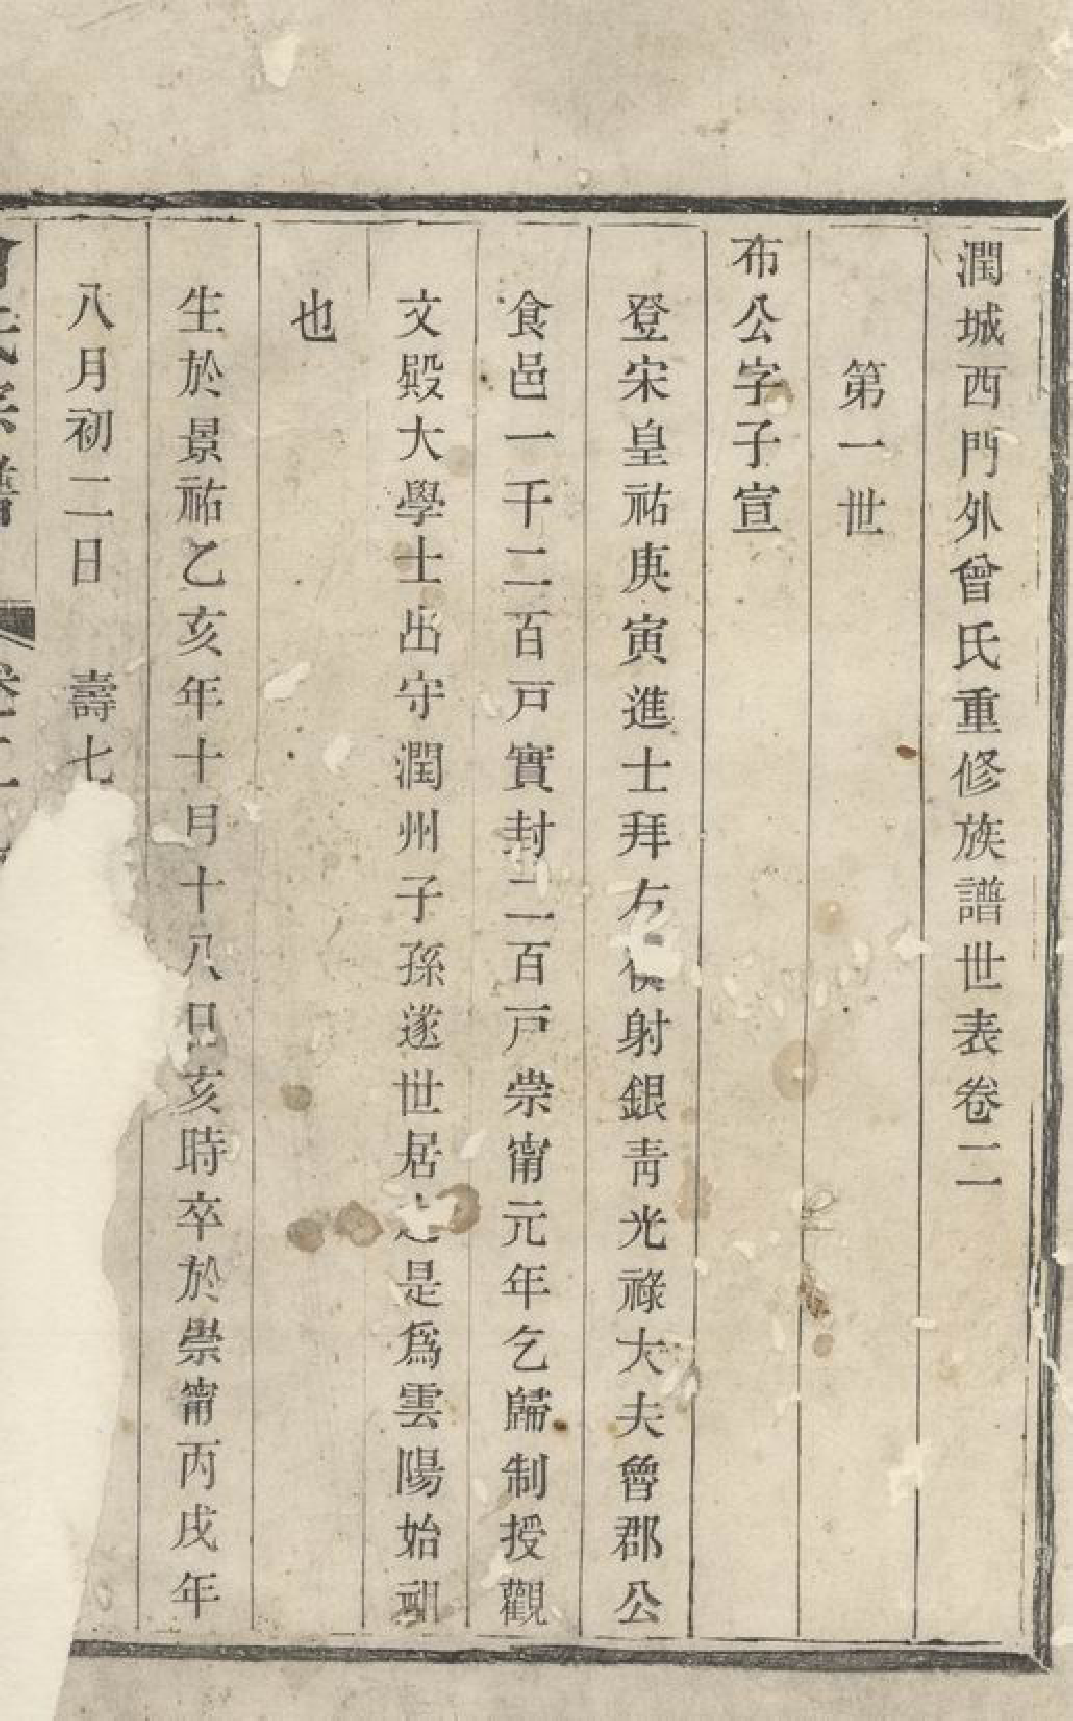 潤城西門外曾氏重修族譜世表卷二
第一世
布公字子宣
登宋皇祐庚寅進士拜右射銀靑光祿大夫曾郡公
食邑一千二百戸實封二百戸崇甯元年乞歸制授觀
文殿大學士出守潤州子孫遂世居是爲雲陽始
也
生於景祐乙亥年十月十八日亥時卒於崇甯丙戌年
八月初二日 壽七
氏宗譜 卷二